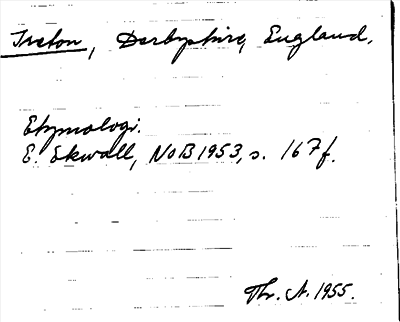 Ireton, Derbyshire, England.
Etymologi.
E. Ekwall, NoB 1953, s. 167 f.
Thr. A. 1955.